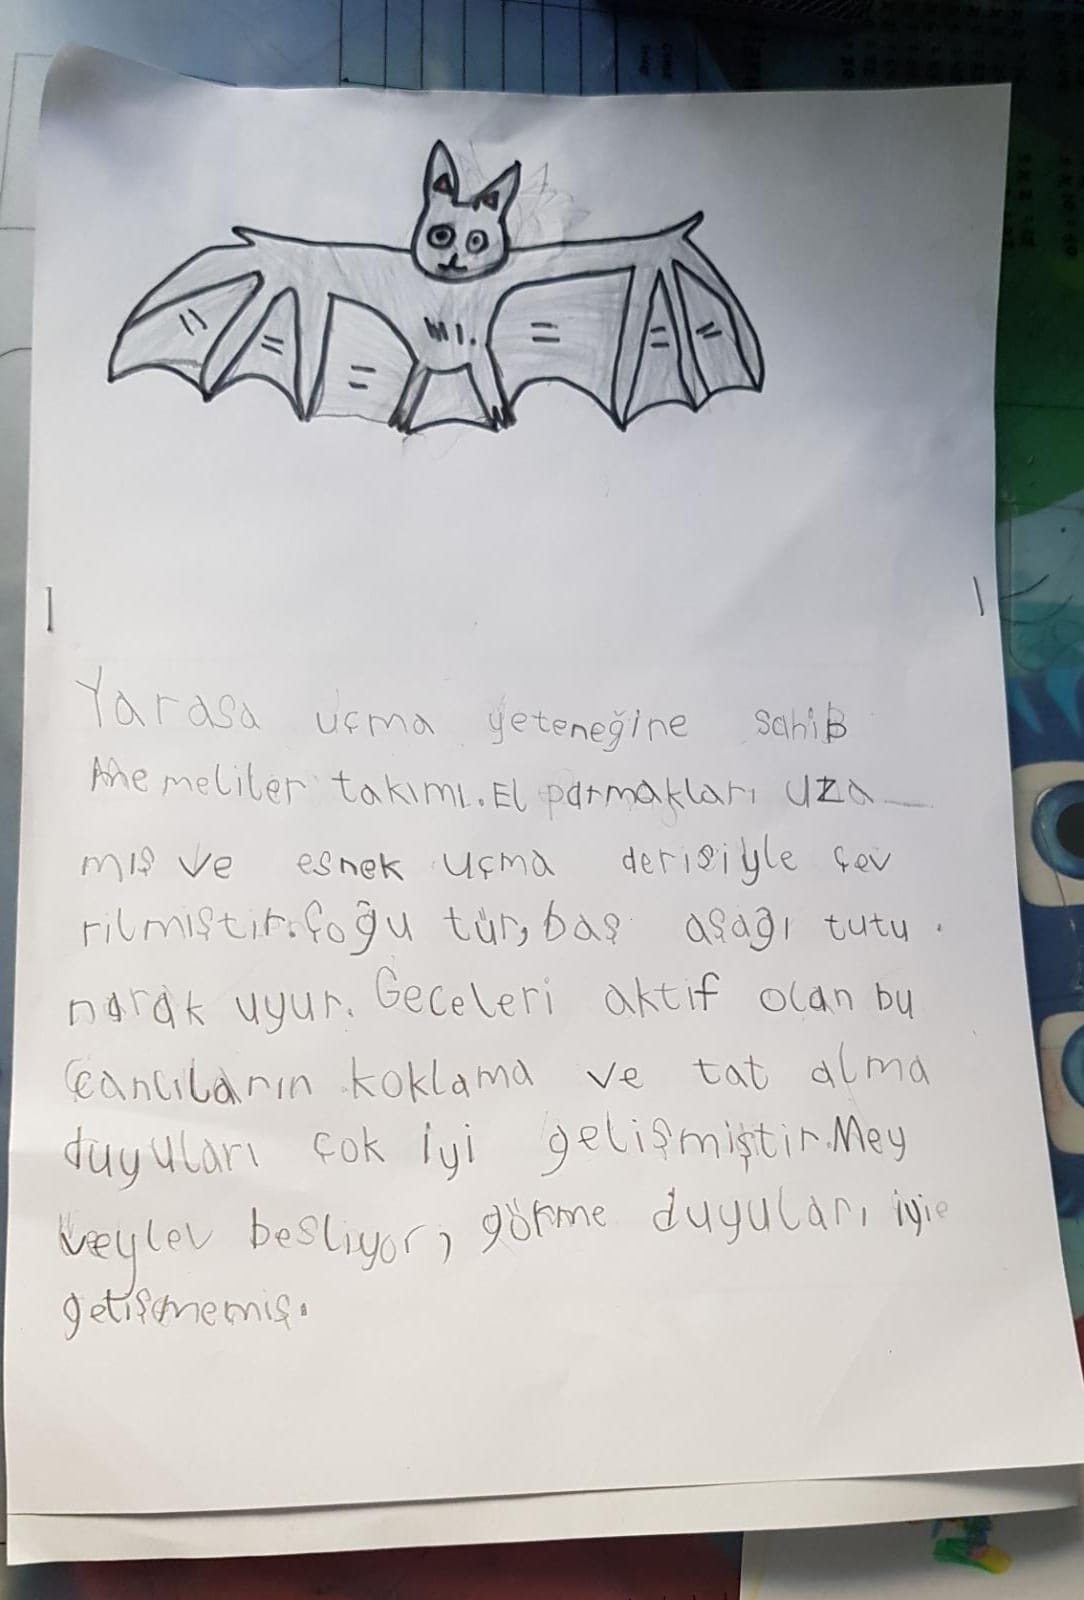 Yarasa uçma yeteneğine sahiB
Memeliler takımı. El parmakları uza
mış ve esnek uçma derisiyle çev
rilmiştir. Çoğu tür, baş aşağı tutu
narak uyur. Geceleri aktif olan bu
Canlıların koklama ve tat alma
duyuları çok iyi gelişmiştir. Mey
veyler besliyor, görme duyuları iyie
gelişmemiş.